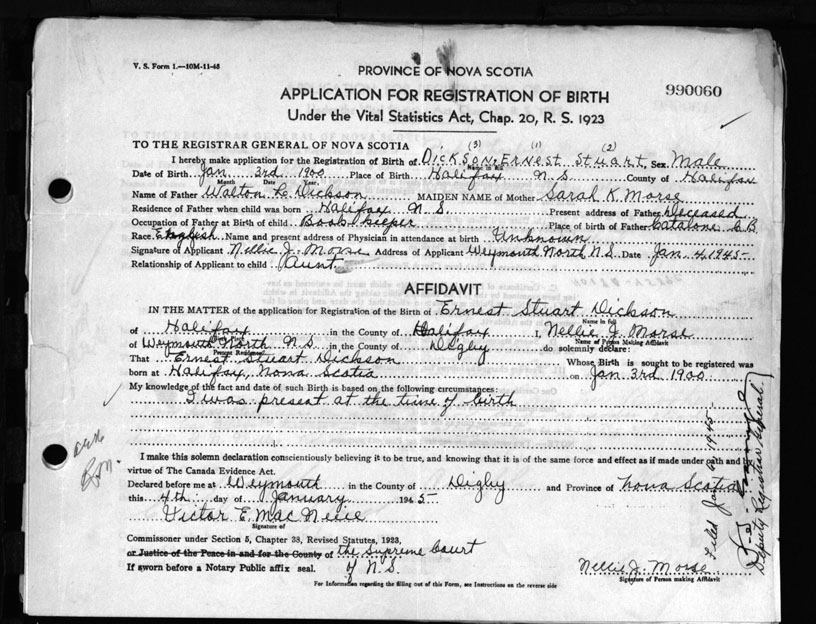 V. S. Form 1.—10M-11-43
PROVINCE OF NOVA SCOTIA
990060
APPLICATION FOR REGISTRATION OF BIRTH
Under the Vital Statistics Act, Chap. 20, R. S. 1923
TO THE REGISTRAR GENERAL OF NOVA SCOTIA (3) (1) (2)
I hereby make application for the Registration of Birth of Dickson, Ernest Stuart, Sex Male
Name in full
Date of Birth Jan 3rd 1900 Place of Birth Halifax N S County of Halifax
Month Date Year
Name of Father Walton L. Dickson MAIDEN NAME of Mother Sarah K Morse
Residence of Father when child was born Halifax N. S. Present address of Father Deceased
Occupation of Father at Birth of child Book keeper Place of birth of Father Catalone C B
Race English Name and present address of Physician in attendance at birth Unknown
Signature of Applicant Nellie J. Morse Address of Applicant Weymouth North N.S. Date Jan 4 1945
Relationship of Applicant to child Aunt
AFFIDAVIT
IN THE MATTER of the application for Registration of the Birth of Ernest Stuart Dickson
Name in full
of Halifax in the County of Halifax I, Nellie J. Morse
Name of Person Making Affidavit
of Weymouth North N S in the County of Digby do solemnly declare:
Present Residence
That Ernest Stuart Dickson Whose Birth is sought to be registered was
born at Halifax, Nova Scotia on Jan 3rd 1900
My knowledge of the fact and date of such Birth is based on the following circumstances:
I was present at the time of birth
I make this solemn declaration conscientiously believing it to be true, and knowing that it is of the same force and effect as if made under oath and by
virtue of The Canada Evidence Act.
Declared before me at Weymouth in the County of Digby and Province of Nova Scotia
this 4th day of January 1945
Victor E. Mac
Signature of
Commissioner under Section 5, Chapter 38, Revised Statutes, 1923,
or Justice of the Peace in and for the County of the Supreme Court
If sworn before a Notary Public affix seal. of N.S.
Nellie J. Morse
Signature of Person making Affidavit
For Information regarding the filling out of this Form, see Instructions on the reverse side
Filed Jan 1945
Deputy Registrar General